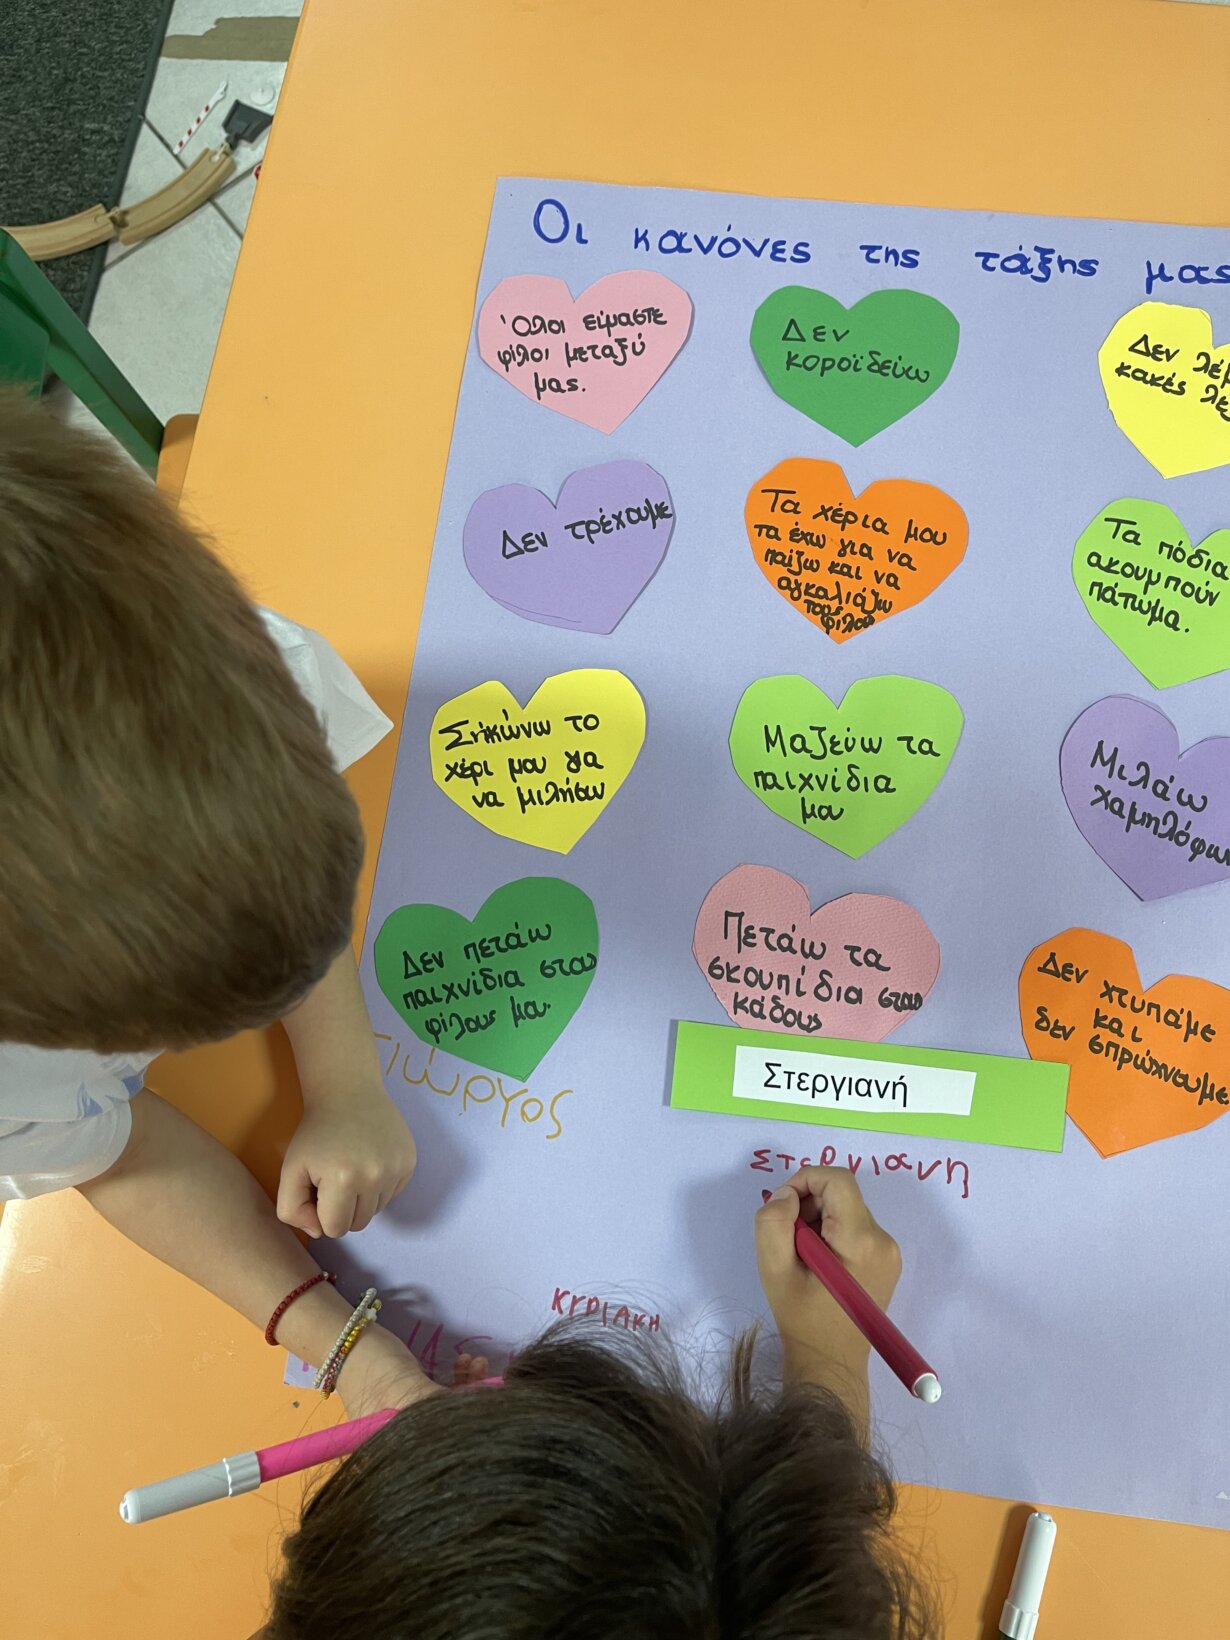 Οι κανόνες της τάξης μας
Όλοι είμαστε
φίλοι μεταξύ
μας.
Δεν
κοροϊδεύω
Δεν
κακές
Δεν τρέχουμε
Τα χέρια μου
τα έχω για να
παίζω και να
αγκαλιάζω
τους
φίλους
Τα πόδια
ακουμπούν
πάτωμα.
Σηκώνω το
χέρι μου για
να μιλήσω
Μαζεύω τα
παιχνίδια
μου
Μιλάω
Δεν πετάω
παιχνίδια στους
φίλους μου.
Πετάω τα
σκουπίδια στους
κάδους
Δεν χτυπάμε
και
δεν σπρώχνουμε
Γιώργος
Στεργιανή
Στεργιανη
ΚΥΡΙΑΚΗ